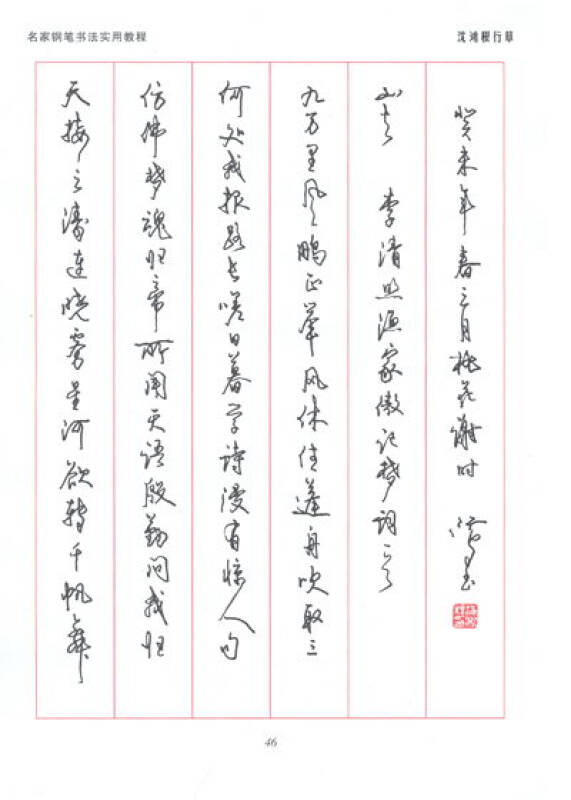 名家钢笔书法实用教程
沈鸿根行草
天接云涛连晓雾星河欲转千帆舞
仿佛梦魂归帝所闻天语殷勤问我归
何处我报路长嗟日暮学诗漫有惊人句
九万里风鹏正举风休住蓬舟吹取三
山去 李清照渔家傲记梦词
癸未年春三月桃花谢时
46